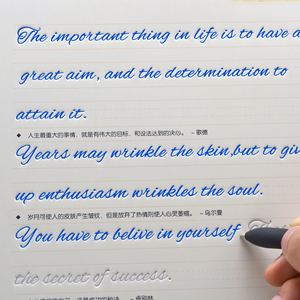 The important thing in life is to have a
great aim, and the determination to
attain it.
◆ 人生最重大的事情，就是有伟大的目标，和设法达到的决心。 – 歌德
Years may wrinkle the skin,but to giv
up enthusiasm wrinkles the soul.
◆ 岁月可使人的皮肤产生皱纹，但是放弃了热情则使人心灵萎缩。 – 乌尔曼
You have to belive in yourself
the secret of success.